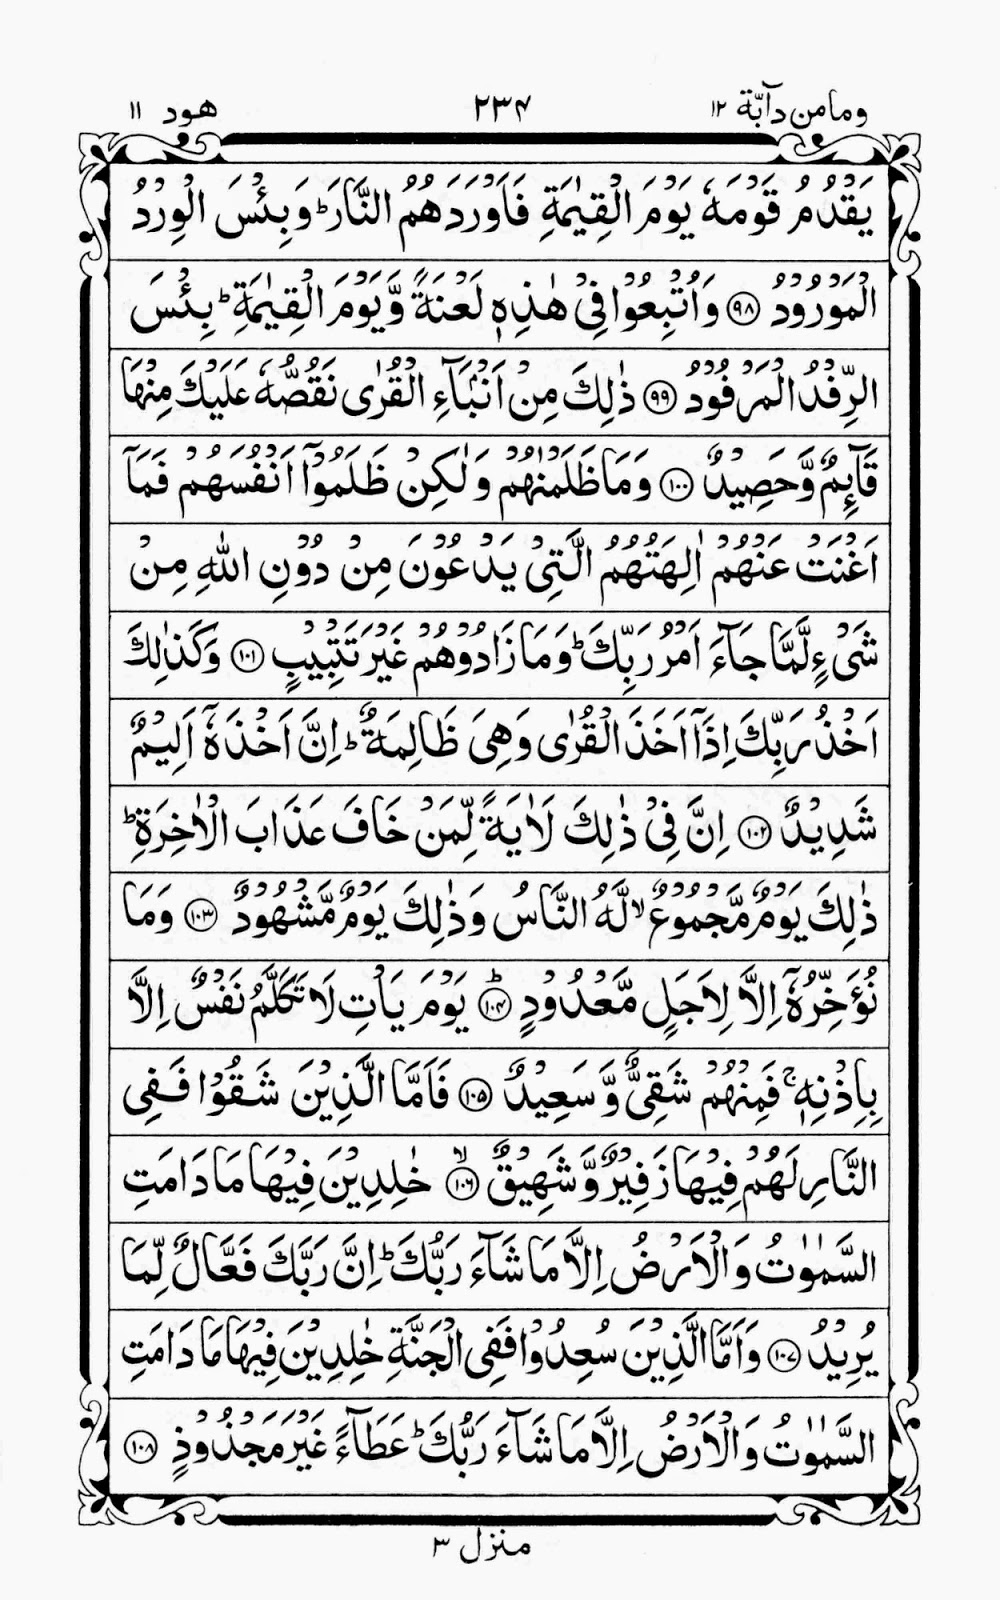 وما من دآبة ١٢
٢٣٤
هود ١١
يَقْدُمُ قَوْمَهٗ يَوْمَ الْقِيٰمَةِ فَاَوْرَدَهُمُ النَّارَ ؕ وَبِئْسَ الْوِرْدُ
الْمَوْرُوْدُ ۝٩٨ وَاُتْبِعُوْا فِىْ هٰذِهٖ لَعْنَةً وَّيَوْمَ الْقِيٰمَةِ ؕ بِئْسَ
الرِّفْدُ الْمَرْفُوْدُ ۝٩٩ ذٰلِكَ مِنْ اَنْۢبَآءِ الْقُرٰى نَقُصُّهٗ عَلَيْكَ مِنْهَا
قَآئِمٌ وَّحَصِيْدٌ ۝١٠٠ وَمَا ظَلَمْنٰهُمْ وَلٰكِنْ ظَلَمُوْۤا اَنْفُسَهُمْ فَمَاۤ
اَغْنَتْ عَنْهُمْ اٰلِهَتُهُمُ الَّتِىْ يَدْعُوْنَ مِنْ دُوْنِ اللّٰهِ مِنْ
شَىْءٍ لَّمَّا جَآءَ اَمْرُ رَبِّكَ ؕ وَمَا زَادُوْهُمْ غَيْرَ تَتْبِيْبٍ ۝١٠١ وَكَذٰلِكَ
اَخْذُ رَبِّكَ اِذَاۤ اَخَذَ الْقُرٰى وَهِىَ ظَالِمَةٌ ؕ اِنَّ اَخْذَهٗۤ اَلِيْمٌ
شَدِيْدٌ ۝١٠٢ اِنَّ فِىْ ذٰلِكَ لَاٰيَةً لِّمَنْ خَافَ عَذَابَ الْاٰخِرَةِ ؕ
ذٰلِكَ يَوْمٌ مَّجْمُوْعٌ ۙ لَّهُ النَّاسُ وَذٰلِكَ يَوْمٌ مَّشْهُوْدٌ ۝١٠٣ وَمَا
نُؤَخِّرُهٗۤ اِلَّا لِاَجَلٍ مَّعْدُوْدٍ ؕ ۝١٠٤ يَوْمَ يَاْتِ لَا تَكَلَّمُ نَفْسٌ اِلَّا
بِاِذْنِهٖ ۚ فَمِنْهُمْ شَقِىٌّ وَّسَعِيْدٌ ۝١٠٥ فَاَمَّا الَّذِيْنَ شَقُوْا فَفِى
النَّارِ لَهُمْ فِيْهَا زَفِيْرٌ وَّشَهِيْقٌ ۙ ۝١٠٦ خٰلِدِيْنَ فِيْهَا مَا دَامَتِ
السَّمٰوٰتُ وَالْاَرْضُ اِلَّا مَا شَآءَ رَبُّكَ ؕ اِنَّ رَبَّكَ فَعَّالٌ لِّمَا
يُرِيْدُ ۝١٠٧ وَاَمَّا الَّذِيْنَ سُعِدُوْا فَفِى الْجَنَّةِ خٰلِدِيْنَ فِيْهَا مَا دَامَتِ
السَّمٰوٰتُ وَالْاَرْضُ اِلَّا مَا شَآءَ رَبُّكَ ؕ عَطَآءً غَيْرَ مَجْذُوْذٍ ۝١٠٨
منزل ٣